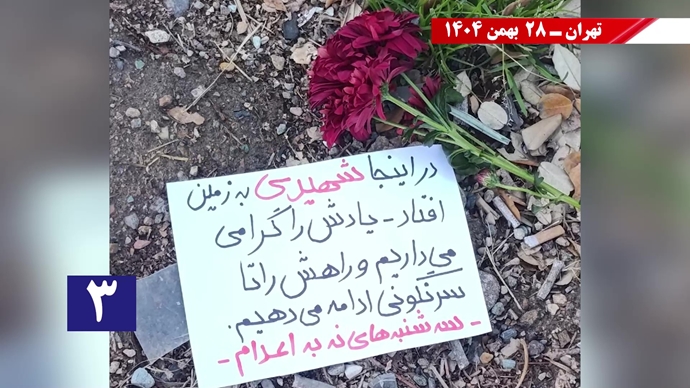 تهران ـ ۲۸ بهمن ۱۴۰۴
در اینجا شهیدی به زمین
افتاد - یادش را گرامی
می‌داریم و راهش را تا
سرنگونی ادامه می‌دهیم.
- سه‌شنبه‌های نه به اعدام -
۳